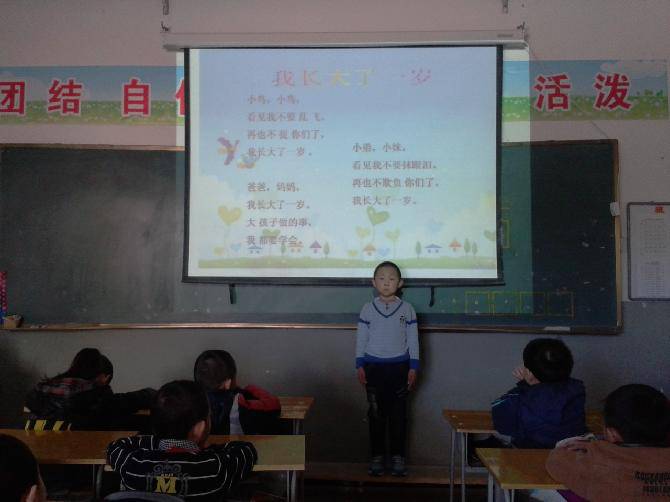 团结 自
活泼
我长大了一岁
小鸟,小鸟,
看见我不要乱飞,
再也不捉你们了,
我长大了一岁。
爸爸,妈妈,
我长大了一岁。
大孩子做的事,
我都要学会。
小弟,小妹,
看见我不要抹眼泪。
再也不欺负你们了,
我长大了一岁。
M